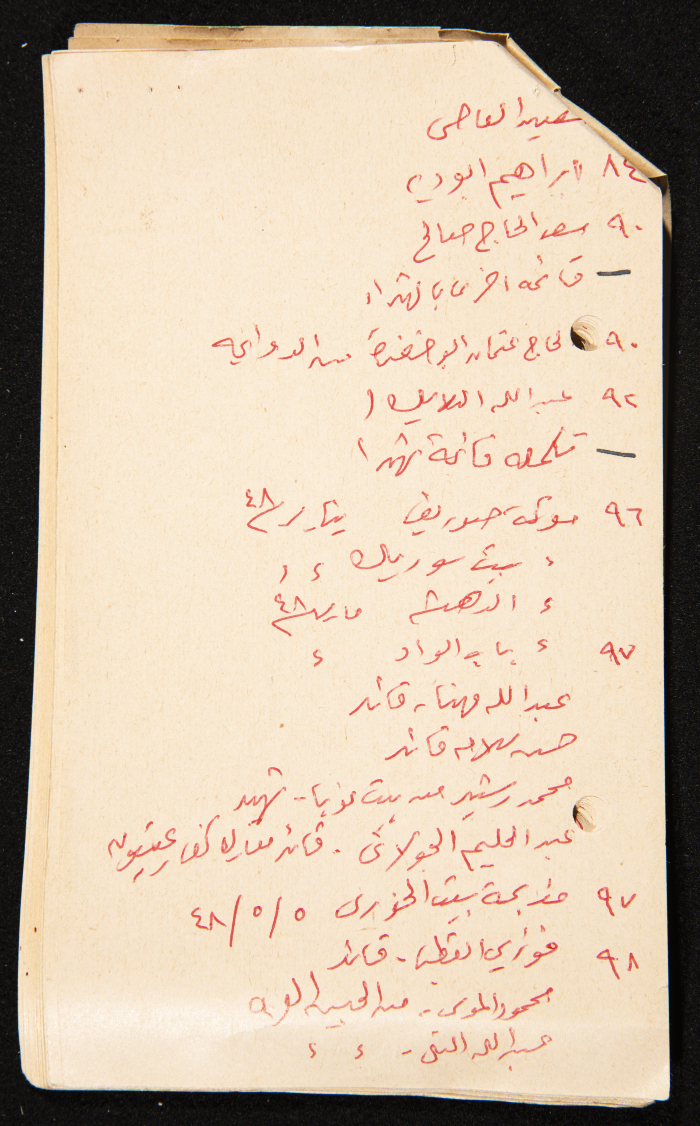 سعيد العاصي
٨٤ ابراهيم ابو ديه
٩٠ سعد الحاج صالح
— قائمه اخرى بالشهداء
٩٠ الحاج عثمان ابو خضرة من الدوايمه
٩٢ عبد الله
— تكملة قائمة شهداء
٩٦ موقعة صوريف يناير ٤٨
ء بيت سوريك ء ء
ء الدهيشه مارس ٤٨
٩٧ ء باب الواد ء
عبد الله مهنا - قائد
حسن سلامه قائد
محمد رشيد من بيت - شهيد
عبد الحليم الجولاني - قائد معارك كفار عتصيون
٩٧ مذبحة بيت الخوري ٥/٥/٤٨
٩٨ فوزي القطب - قائد
محمود الموسى - من الجيش
عبد الله التل - ء ء